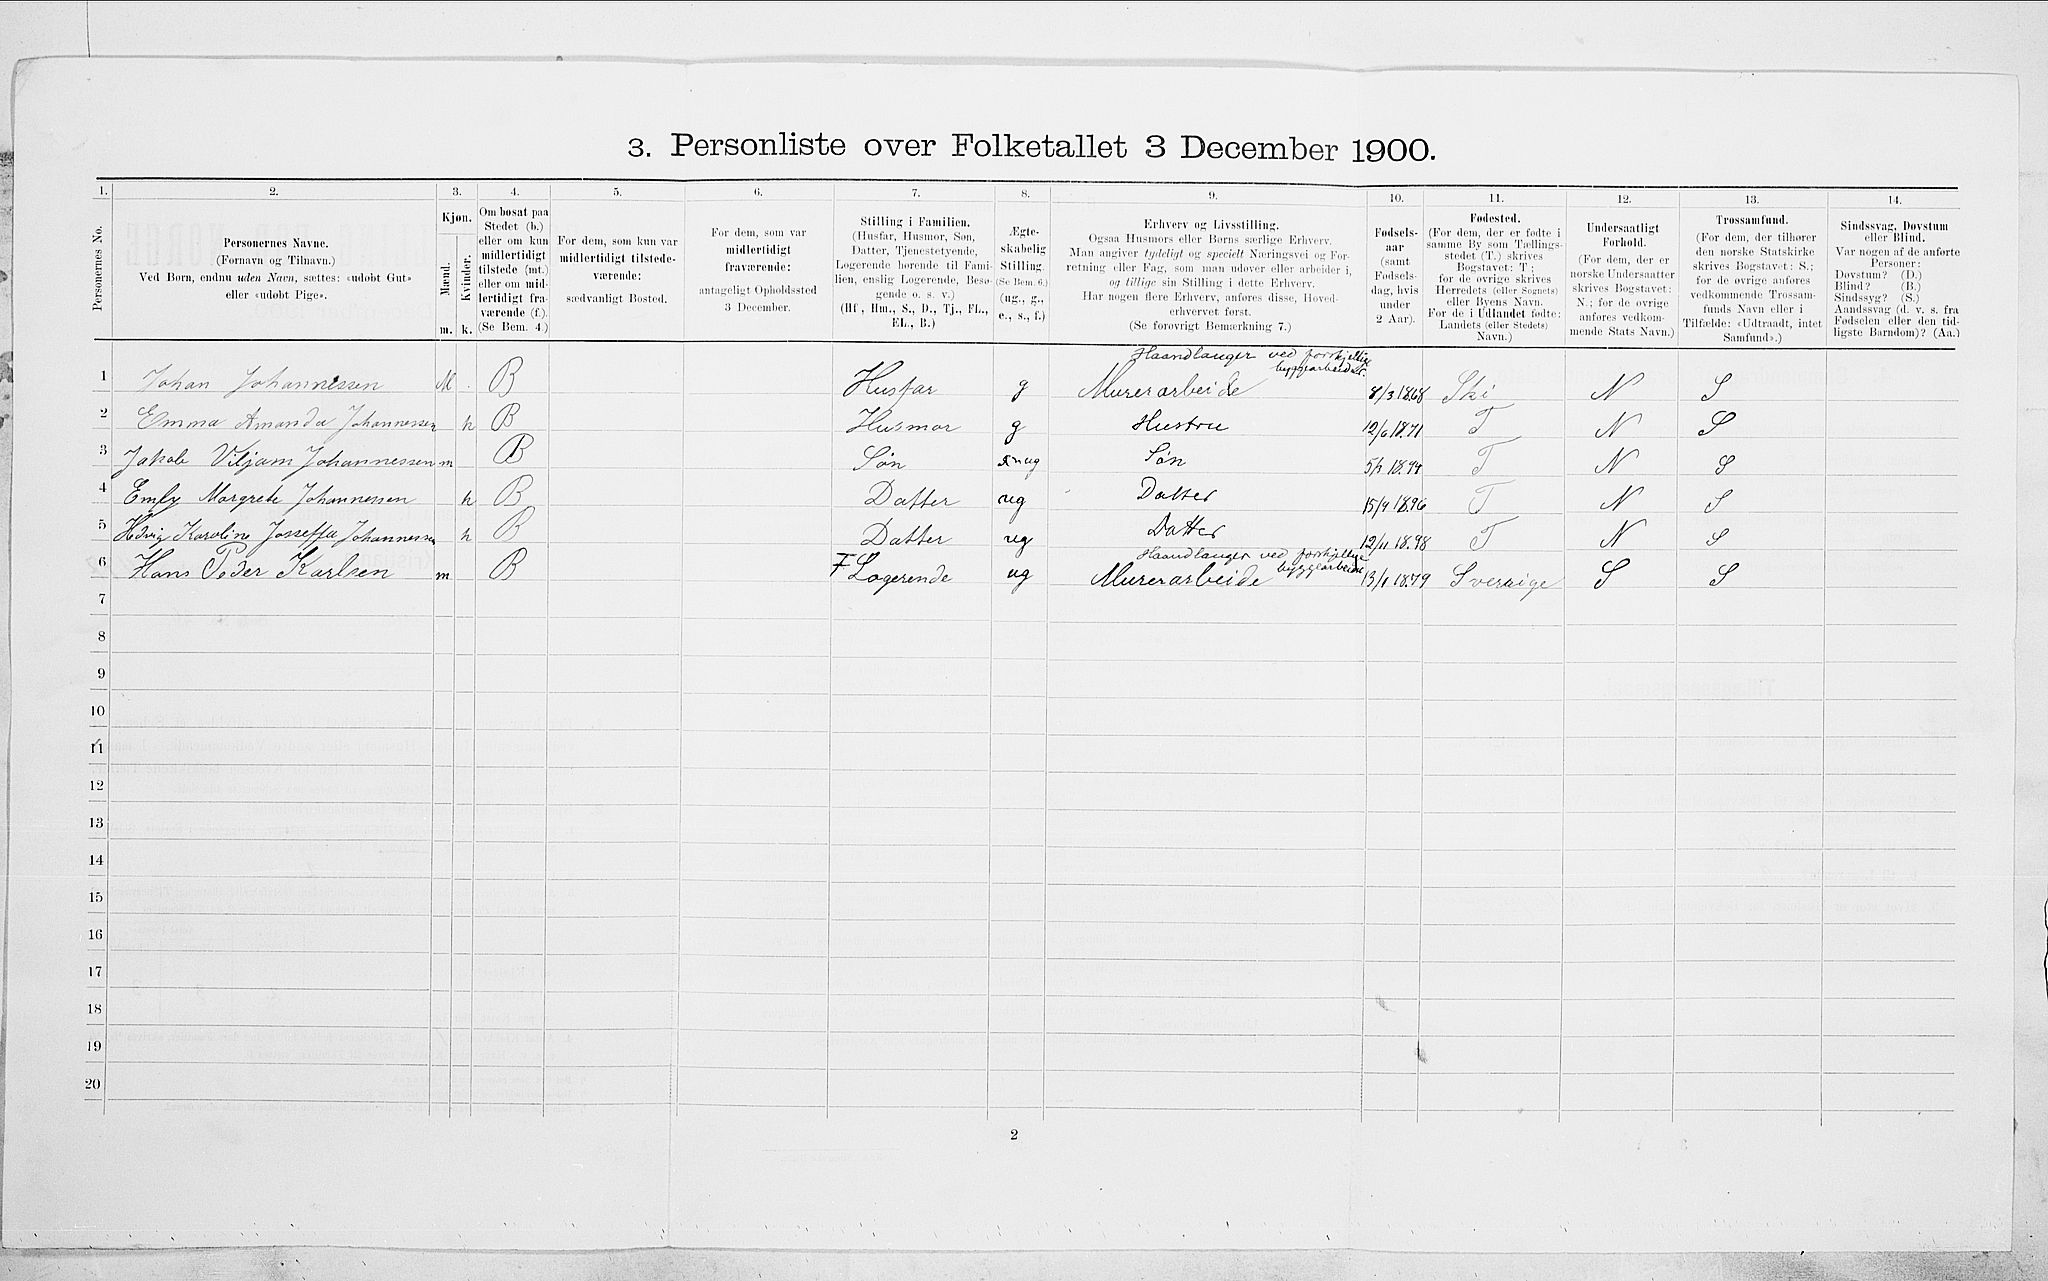 3. Personliste over Folketallet 3 December 1900.
1. 2. 3. 4. 5. 6. 7. 8. 9. 10. 11. 12. 13. 14.
Personernes No.
Personernes Navne.
(Fornavn og Tilnavn.)
Ved Børn, endnu uden Navn, sættes: «udøbt Gut»
eller «udøbt Pige».
Kjøn.
Mænd.
Kvinder.
m. k.
Om bosat paa
Stedet (b.)
eller om kun
midlertidigt
tilstede (mt.)
eller om mid-
lertidigt fra-
værende (f.).
(Se Bem. 4.)
For dem, som kun var
midlertidigt tilstede-
værende:
sædvanligt Bosted.
For dem, som var
midlertidigt
fraværende:
antageligt Opholdssted
3 December.
Stilling i Familien.
(Husfar, Husmor, Søn,
Datter, Tjenestetyende,
Logerende hørende til Fami-
lien, enslig Logerende, Besø-
gende o. s. v.)
(Hf, Hm., S., D., Tj., FL.,
EL., B.)
Ægte-
skabelig
Stilling.
(Se Bem. 6.)
(ug., g.,
e., s., f.)
Erhverv og Livsstilling.
Ogsaa Husmors eller Børns særlige Erhverv.
Man angiver tydeligt og specielt Næringsvei og For-
retning eller Fag, som man udøver eller arbeider i,
og tillige sin Stilling i dette Erhverv.
Har nogen flere Erhverv, anføres disse, Hoved-
erhvervet først.
(Se forøvrigt Bemærkning 7.)
Fødsels-
aar
(samt
Fødsels-
dag, hvis
under
2 Aar).
Fødested.
(For dem, der er fødte i
samme By som Tællings-
stedet (T.) skrives
Bogstavet: T;
for de øvrige skrives
Herredets (eller Sognets)
eller Byens Navn.
For de i Udlandet fødte:
Landets (eller Stedets)
Navn.)
Undersaatligt
Forhold.
(For dem, der er
norske Undersaatter
skrives Bogstavet:
N.; for de øvrige
anføres vedkom-
mende Stats Navn.)
Trossamfund.
(For dem, der tilhører
den norske Statskirke
skrives Bogstavet: S.;
for de øvrige anføres
vedkommende Trossam-
funds Navn eller i
Tilfælde: «Udtraadt, intet
Samfund».)
Sindssvag, Døvstum
eller Blind.
Var nogen af de anførte
Personer:
Døvstum? (D.)
Blind? (B.)
Sindssyg? (S.)
Aandssvag (d. v. s. fra
Fødselen eller den tid-
ligste Barndom)? (Aa.)
Haandlanger ved forskjellige
byggearbeider.
1 Johan Johannessen M. B Husfar g Murerarbeide 8/3 1868 Ski N S
2 Emma Amanda Johannessen k B Husmor g Hustru 12/6 1871 T N S
3 Jakob Viljam Johannessen m B Søn ug Søn 1894 T N S
4 Emly Margrete Johannessen k B Datter ug Datter 15/9 1896 T N S
5 Hedvig Karoline Joseffa Johannessen k B Datter ug Datter 12/11 1898 T N S
Haandlanger ved forskjellige
byggearbeide
6 Hans Peder Karlsen m B F Logerende ug Murerarbeide 13/1 1879 Sverrige S S
7
8
9
10
11
12
13
14
15
16
17
18
19
20
2